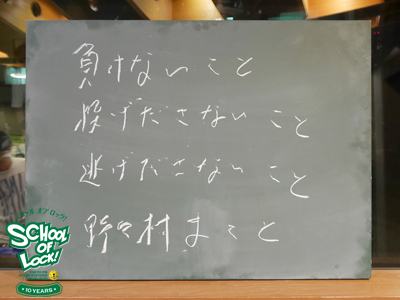 負けないこと
投げださないこと
逃げださないこと
野々村まこと
SCHOOL
OF
LOCK!
10 YEARS